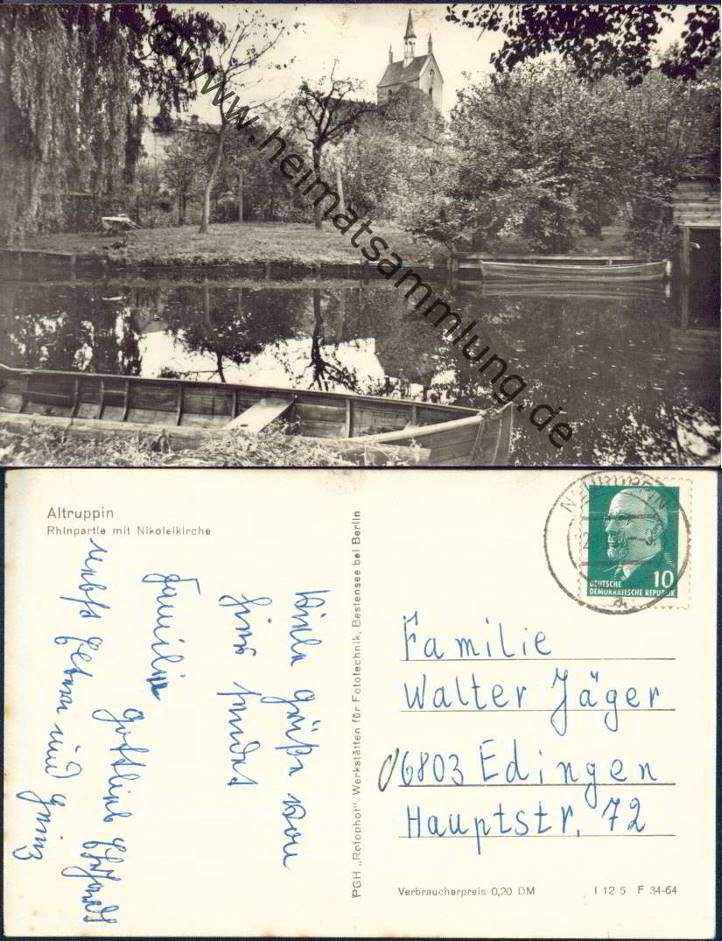 ©www.heimatsammlung.de
Altruppin
Rhinpartie mit Nikoleikirche
Viele Grüße von
hier sendet
Familie
Gottlieb
nebst Eltern und Heinz
PGH „Rotophot“, Werkstätten für Fototechnik, Bestensee bei Berlin
NEURUPPIN
10
DEUTSCHE
DEMOKRATISCHE REPUBLIK
Familie
Walter Jäger
06803 Edingen
Hauptstr. 72
Verbraucherpreis 0,20 DM I 12 5 F 34-64